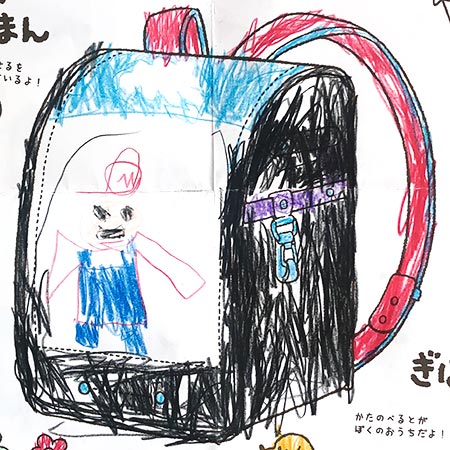 まん
せるを
いるよ！
ぎ
かたのべるとが
ぼくのおうちだよ！